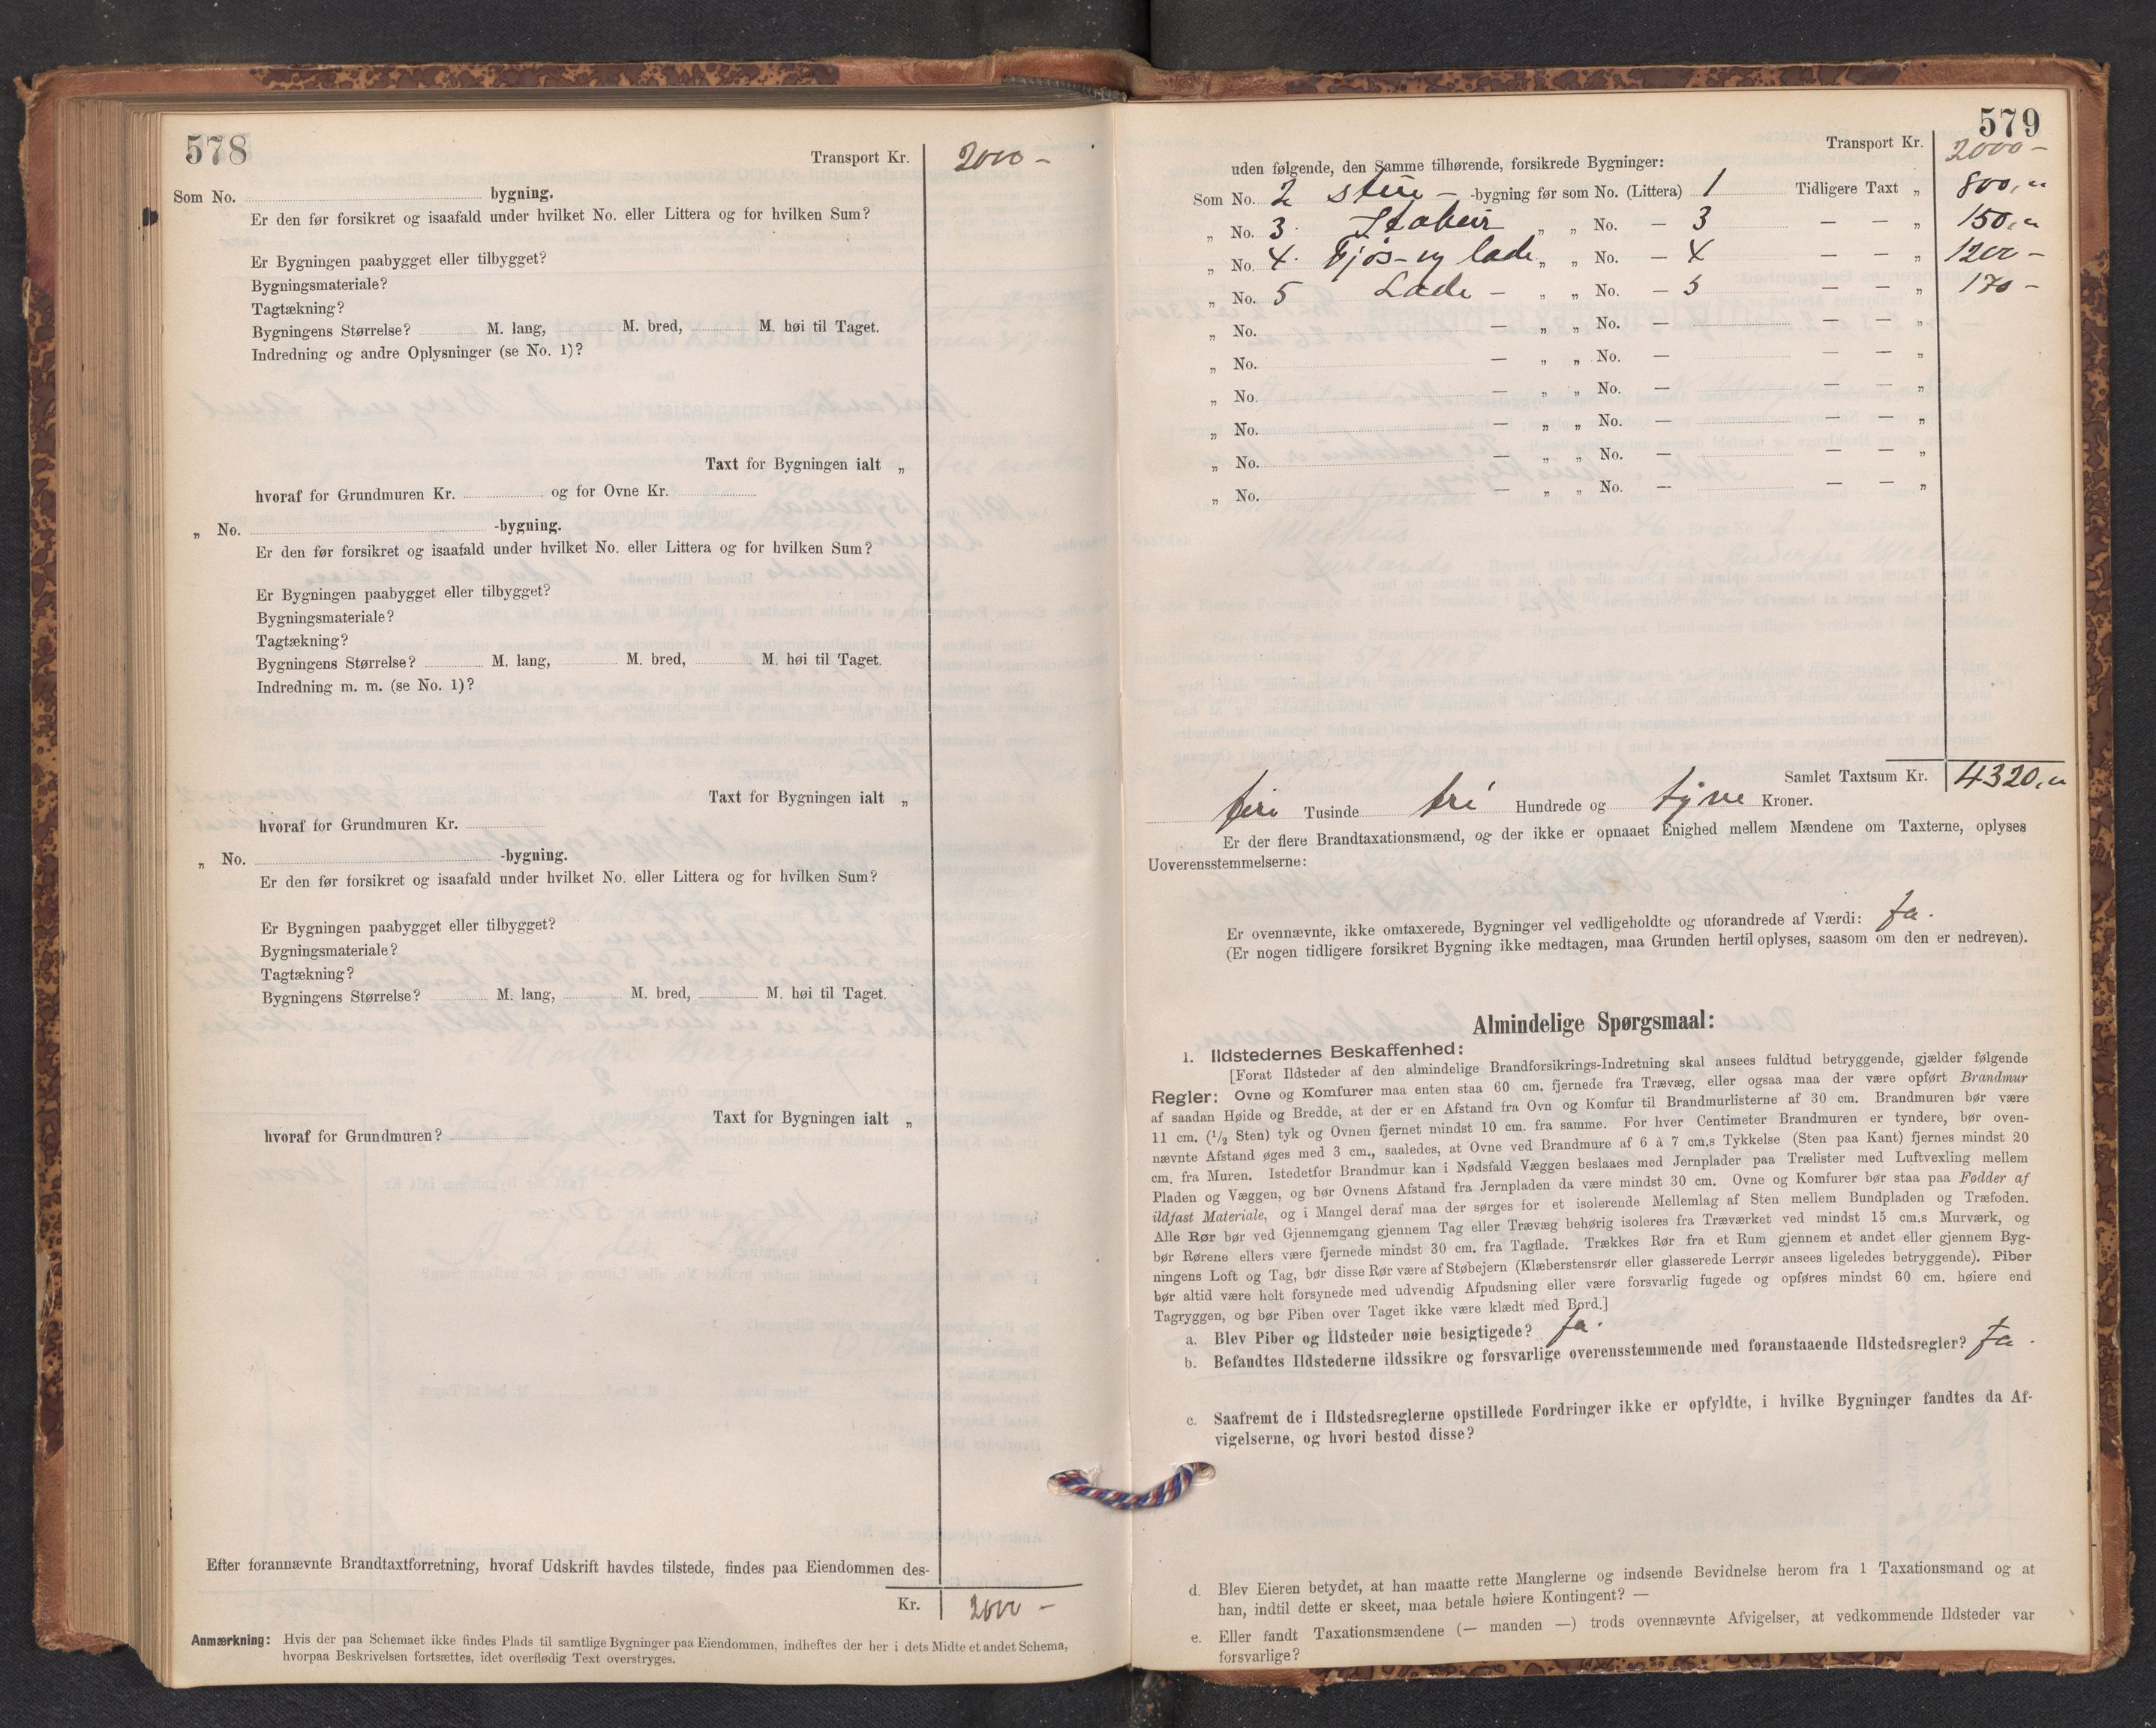 578
Transport Kr. 2000 –
Som No. bygning.
Er den før forsikret og isaafald under hvilket No. eller Littera og for hvilken Sum?
Er Bygningen paabygget eller tilbygget?
Bygningsmateriale?
Tagtækning?
Bygningens Størrelse? M. lang, M. bred, M. høi til Taget.
Indredning og andre Oplysninger (se No. 1)?
Taxt for Bygningen ialt „
hvoraf for Grundmuren Kr. og for Ovne Kr.
„ No. -bygning.
Er den før forsikret og isaafald under hvilket No. eller Littera og for hvilken Sum?
Er Bygningen paabygget eller tilbygget?
Bygningsmateriale?
Tagtækning?
Bygningens Størrelse? M. lang, M. bred, M. høi til Taget.
Indredning m. m. (se No. 1)?
Taxt for Bygningen ialt „
hvoraf for Grundmuren Kr.
„ No. -bygning.
Er den før forsikret og isaafald under hvilket No. eller Littera og for hvilken Sum?
Er Bygningen paabygget eller tilbygget?
Bygningsmateriale?
Tagtækning?
Bygningens Størrelse? M. lang, M. bred, M. høi til Taget.
Taxt for Bygningen ialt „
hvoraf for Grundmuren?
Efter forannævnte Brandtaxtforretning, hvoraf Udskrift havdes tilstede, findes paa Eiendommen des-
Kr. 2000 –
Anmærkning: Hvis der paa Schemaet ikke findes Plads til samtlige Bygninger paa Eiendommen, indheftes der her i dets Midte et andet Schema,
hvorpaa Beskrivelsen fortsættes, idet overflødig Text overstryges.
579
Transport Kr. 2000 –
uden følgende, den Samme tilhørende, forsikrede Bygninger:
Som No. 2 stue – -bygning før som No. (Littera) 1 Tidligere Taxt „ 800,"
„ No. 3. Stabur „ „ No. — 3 — — „ 150,"
„ No. 4. Fjøs- og lade „ „ No. — 4 — — „ 1200 –
„ No. 5 Lade – „ „ No. — 5 — — „ 170 –
„ No. — „ „ No. — — — „
„ No. — „ „ No. — — — „
„ No. — „ „ No. — — — „
„ No. — „ „ No. — — — „
„ No. — „ „ No. — — — „
„ No. — „ „ No. — — — „
Samlet Taxtsum Kr. 4320,"
fire Tusinde tre Hundrede og tyve Kroner.
Er der flere Brandtaxationsmænd, og der ikke er opnaaet Enighed mellem Mændene om Taxterne, oplyses
Uoverensstemmelserne:
Er ovennævnte, ikke omtaxerede, Bygninger vel vedligeholdte og uforandrede af Værdi: Ja.
(Er nogen tidligere forsikret Bygning ikke medtagen, maa Grunden hertil oplyses, saasom om den er nedreven).
Almindelige Spørgsmaal:
1. Ildstedernes Beskaffenhed:
[Forat Ildsteder af den almindelige Brandforsikrings-Indretning skal ansees fuldtud betryggende, gjælder følgende
Regler: Ovne og Komfurer maa enten staa 60 cm. fjernede fra Trævæg, eller ogsaa maa der være opført Brandmur
af saadan Høide og Bredde, at der er en Afstand fra Ovn og Komfur til Brandmurlisterne af 30 cm. Brandmuren bør være
11 cm. (1/2 Sten) tyk og Ovnen fjernet mindst 10 cm. fra samme. For hver Centimeter Brandmuren er tyndere, bør oven-
nævnte Afstand øges med 3 cm., saaledes, at Ovne ved Brandmure af 6 à 7 cm.s Tykkelse (Sten paa Kant) fjernes mindst 20
cm. fra Muren. Istedetfor Brandmur kan i Nødsfald Væggen beslaaes med Jernplader paa Trælister med Luftvexling mellem
Pladen og Væggen, og bør Ovnens Afstand fra Jernpladen da være mindst 30 cm. Ovne og Komfurer bør staa paa Fødder af
ildfast Materiale, og i Mangel deraf maa der sørges for et isolerende Mellemlag af Sten mellem Bundpladen og Træfoden.
Alle Rør bør ved Gjennemgang gjennem Tag eller Trævæg behørig isoleres fra Træværket ved mindst 15 cm.s Murværk, og
bør Rørene ellers være fjernede mindst 30 cm. fra Tagflade. Trækkes Rør fra et Rum gjennem et andet eller gjennem Byg-
ningens Loft og Tag, bør disse Rør være af Støbejern (Klæberstensrør eller glasserede Lerrør ansees ligeledes betryggende). Piber
bør altid være helt forsynede med udvendig Afpudsning eller være forsvarlig fugede og opføres mindst 60 cm. høiere end
Tagryggen, og bør Piben over Taget ikke være klædt med Bord.]
a. Blev Piber og Ildsteder nøie besigtigede? Ja.
b. Befandtes Ildstederne ildssikre og forsvarlige overensstemmende med foranstaaende Ildstedsregler? Ja.
c. Saafremt de i Ildstedsreglerne opstillede Fordringer ikke er opfyldte, i hvilke Bygninger fandtes da Af-
vigelserne, og hvori bestod disse?
d. Blev Eieren betydet, at han maatte rette Manglerne og indsende Bevidnelse herom fra 1 Taxationsmand og at
han, indtil dette er skeet, maa betale høiere Kontingent? —
e. Eller fandt Taxationsmændene (— manden —) trods ovennævnte Afvigelser, at vedkommende Ildsteder var
forsvarlige?